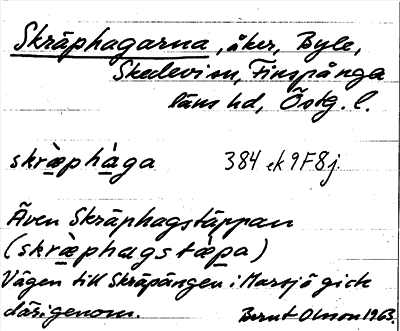 Skräphagarna, åker, Byle,
Skedevi sn, Finspånga
läns hd, Östg. l.
skræ̀phàga 384 ek 9F8j.
Även Skräphagstäppan
(skræ̀phagstæ̀pa)
Vägen till Skräpängen i Marsjö gick
därigenom. Bernt Olsson 1963.